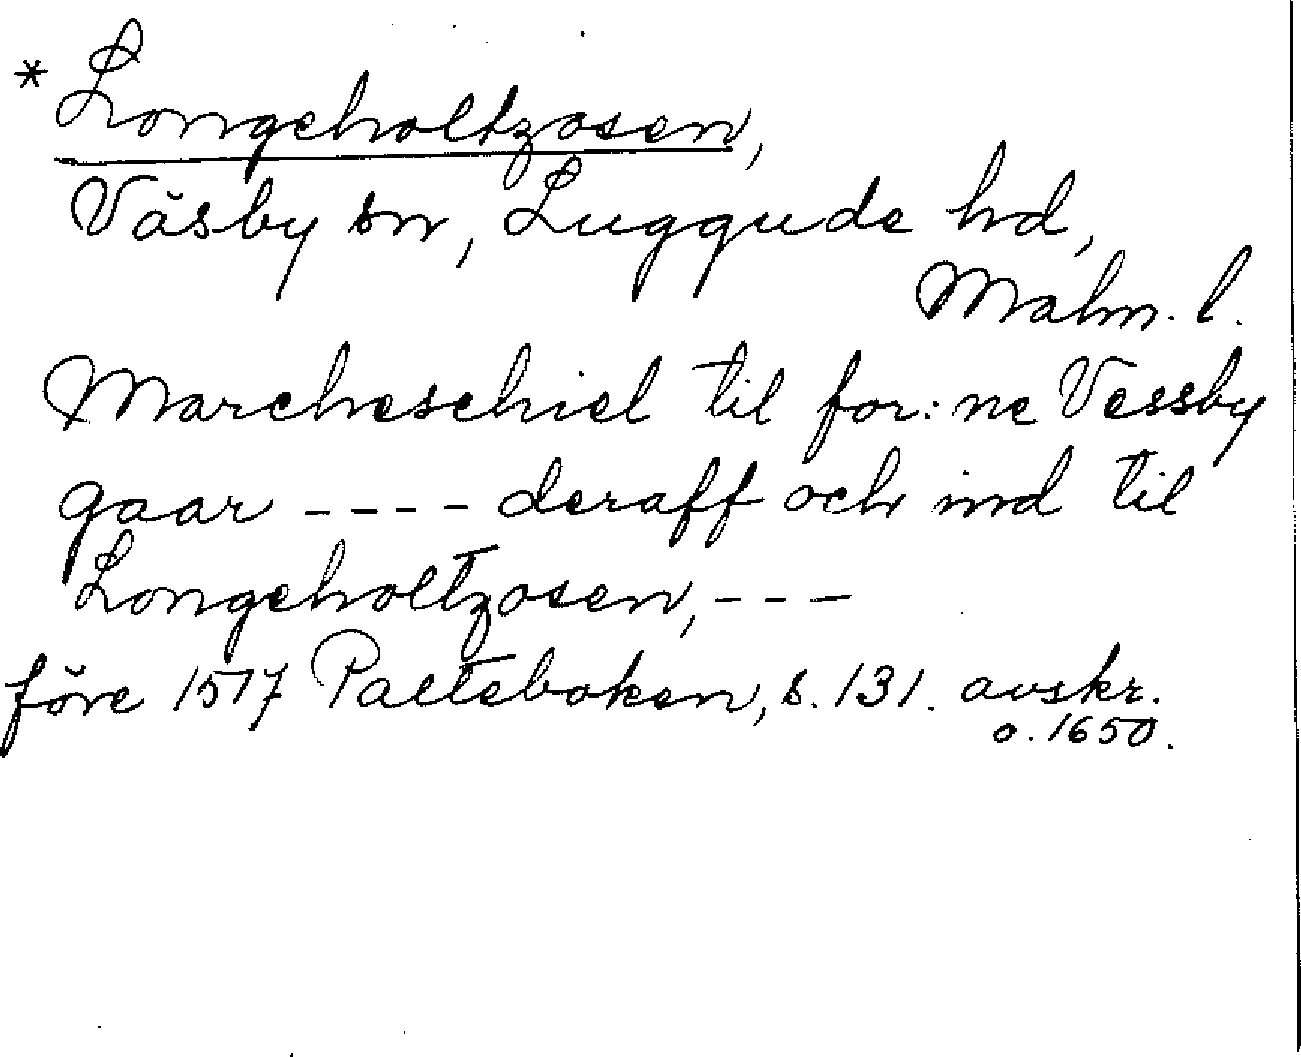 * Longeholtzosen,
Väsby sn, Luggude hd,
Malm. l.
Marcheschiel til for: ne Vessby
gaar ---- deraff och ind til
Longeholtzosen, ---
före 1517 Palteboken, s. 131. avskr.
o. 1650.